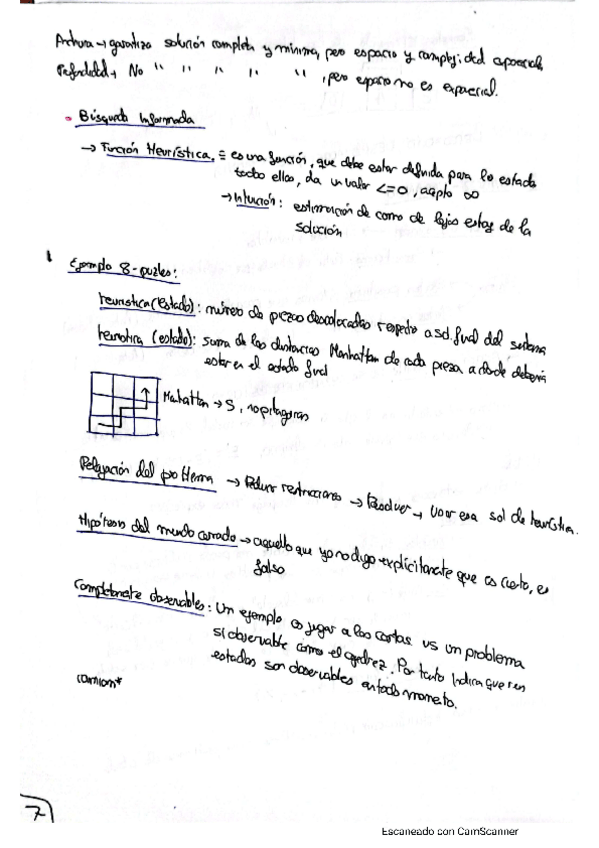 Anchura → garantiza solución completa y mínima, pero espacio y complejidad exponencial
Profundidad → No " " " " " , pero espacio no es exponencial.
• Búsqueda Informada
→ Función Heurística. ≡ es una función, que debe estar definida para los estados
todos ellos, da un valor <=0, acepto ∞
→ Intuición: estimación de como de lejos estoy de la
solución
Ejemplo 8-puzles:
heurística (Estado): número de piezas descolocadas respecto a sol. final del sistema
heurística (estado): suma de las distancias Manhattan de cada pieza a donde debería
estar en el estado final
Manhattan → 5, no pitagoras
Relajación del problema → Reducir restricciones → Resolver → usar esa sol de heurística.
Hipótesis del mundo cerrado → aquello que yo no digo explícitamente que es cierto, es
falso
Completamente observables: Un ejemplo es jugar a las cartas vs un problema
sí observable como el ajedrez. Por tanto indica que
estados son observables en todo momento.
7
Escaneado con CamScanner